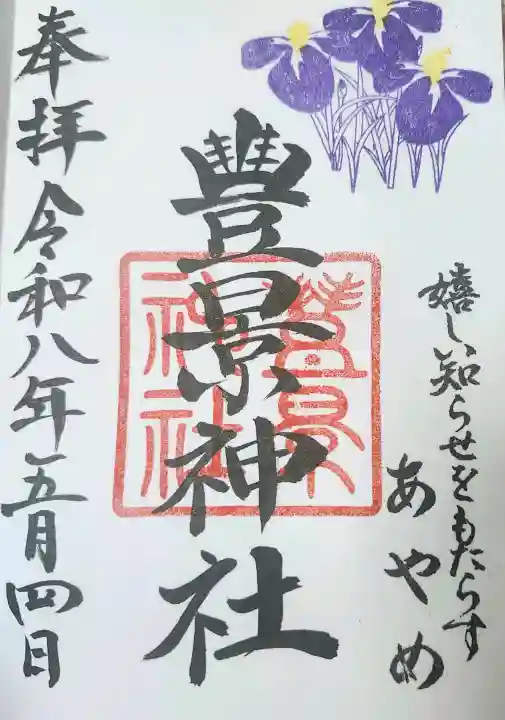 嬉しい知らせをもたらす
あやめ
豊景神社
豊景神社
奉拝 令和八年五月四日